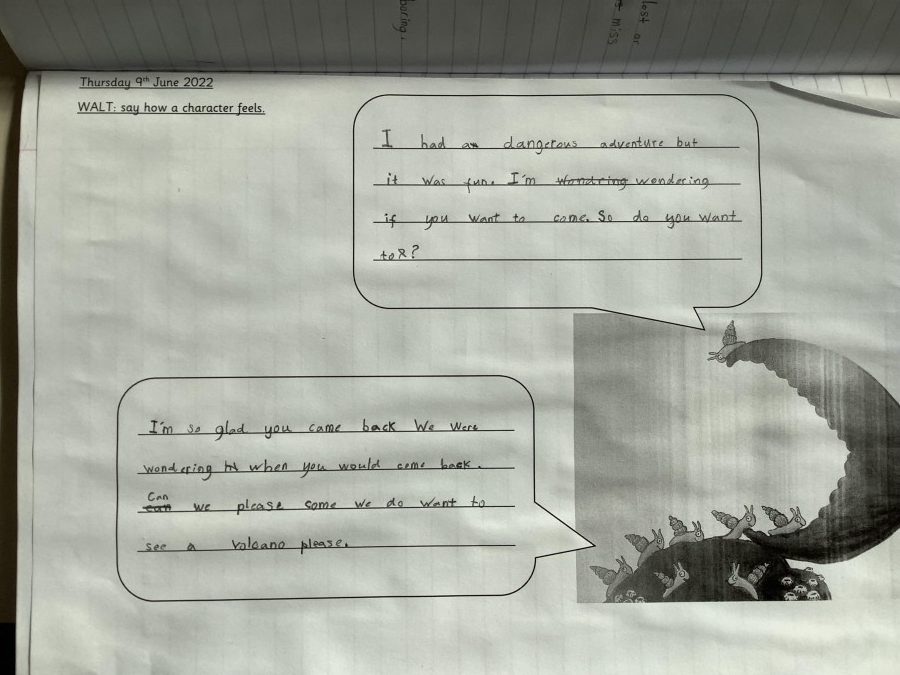 lost or
miss
boring.
Thursday 9th June 2022
WALT: say how a character feels.
I had a dangerous adventure but
it was fun. I'm wondring wondering
if you want to come. So do you want
to?
I'm so glad you came back We were
wondering when you would come back.
Can
can we please some we do want to
see a volcano please.